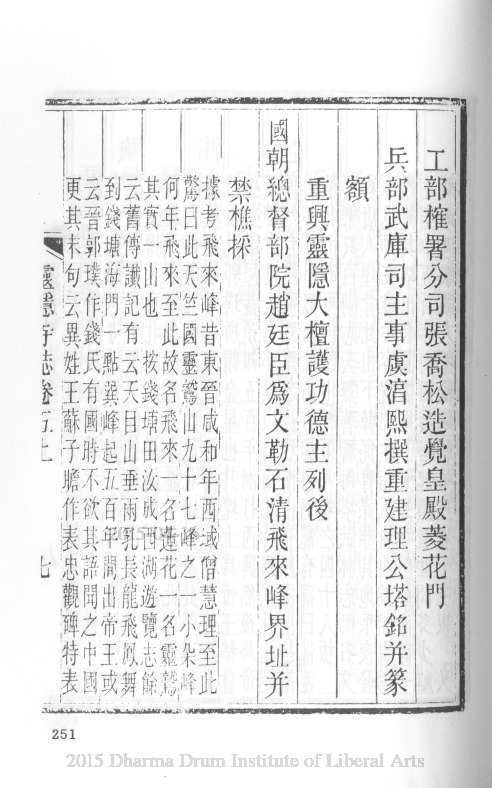 工部榷署分司張喬松造覺皇殿菱花門
兵部武庫司主事虞淯熙撰重建理公塔銘并篆
額
重興靈隱大檀護功德主列後
國朝總督部院趙廷臣爲文勒石清飛來峰界址并
禁樵採
據考飛來峰昔東晉咸和年西域僧慧理至此
驚曰此天竺國靈鷲山九十七峰之一小朶峰
何年飛來至此故名飛來一名蓮花一名靈鷲
其實一山也按錢塘田汝成西湖遊覽志餘
云舊傳讖記有云天目山垂兩乳長龍飛鳳舞
到錢塘海門一點巽峰起五百年間出帝王或
云晉郭璞作錢氏有國時不欲其語聞之中國
更其末句云異姓王蘇子瞻作表忠觀碑特表
靈隱寺誌卷五上
七
251
2015 Dharma Drum Institute of Liberal Arts